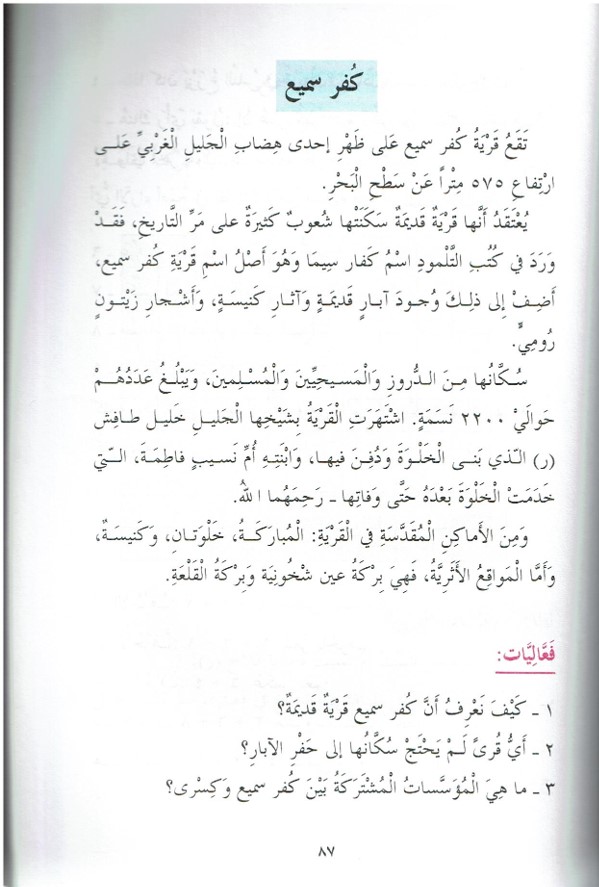 كُفر سميع
تَقَعُ قَرْيَةُ كُفر سميع عَلى ظَهْرِ إحدى هِضابِ الْجَليلِ الْغَرْبِيِّ عَلــى
ارْتِفاعِ ٥٧٥ مِتْراً عَنْ سَطْحِ الْبَحْرِ.
يُعْتَقَدُ أَنَّها قَرْيَةٌ قَديمَةٌ سَكَنَتْها شُعوبٌ كَثيرَةٌ على مَرِّ التَّاريخِ، فَقَــدْ
وَرَدَ في كُتُبِ التَّلْمودِ اسْمُ كَفار سيمَا وَهُوَ أَصْلُ اسْمِ قَرْيَةِ كُفر سميع،
أَضِفْ إلى ذلِـكَ وُجـودَ آبـارٍ قَديمَـةٍ وَآثـارِ كَنيسَـةٍ، وَأَشْـجارِ زَيْتـونٍ
رُومِيٍّ.
سُـكَّانُها مِـنَ الـدُّروزِ وَالْمَسـيحِيِّينَ وَالْمُسْـلِمينَ، وَيَبْلُـغُ عَدَدُهُــمْ
حَوالَيْ ٢٢٠٠ نَسَمَةٍ. اشْتَهَرَتِ الْقَرْيَةُ بِشَيْخِها الْجَليـلِ خَليـل طـافِش
(ر) الَّـذي بَنـى الْخَلْـوَةَ وَدُفِـنَ فيهـا، وَابْنَتِـهِ أُمِّ نَسـيبٍ فاطِمَـةَ، الـتّي
خَدَمَتْ الْخَلْوَةَ بَعْدَهُ حَتَّى وَفاتِها ـ رَحِمَهُما اللهُ.
وَمِنَ الأَماكِنِ الْمُقَدَّسَةِ في الْقَرْيَةِ: الْمُبارَكَـةُ، خَلْوَتـانِ، وَكَنيسَـةٌ،
وَأَمَّا الْمَواقِعُ الأَثَرِيَّةُ، فَهِيَ بِرْكَةُ عين شْخُونِيَة وَبِرْكَةُ الْقَلْعَةِ.
فَعَّالِيَّات:
١ ـ كَيْفَ نَعْرِفُ أَنَّ كُفر سميع قَرْيَةٌ قَديمَةٌ؟
٢ ـ أَيُّ قُرىً لَـمْ يَحْتَجْ سُكَّانُها إلى حَفْرِ الآبارِ؟
٣ ـ ما هِيَ الْمُؤَسَّساتُ الْمُشْتَرَكَةُ بَيْنَ كُفر سميع وَكِسْرى؟
٨٧